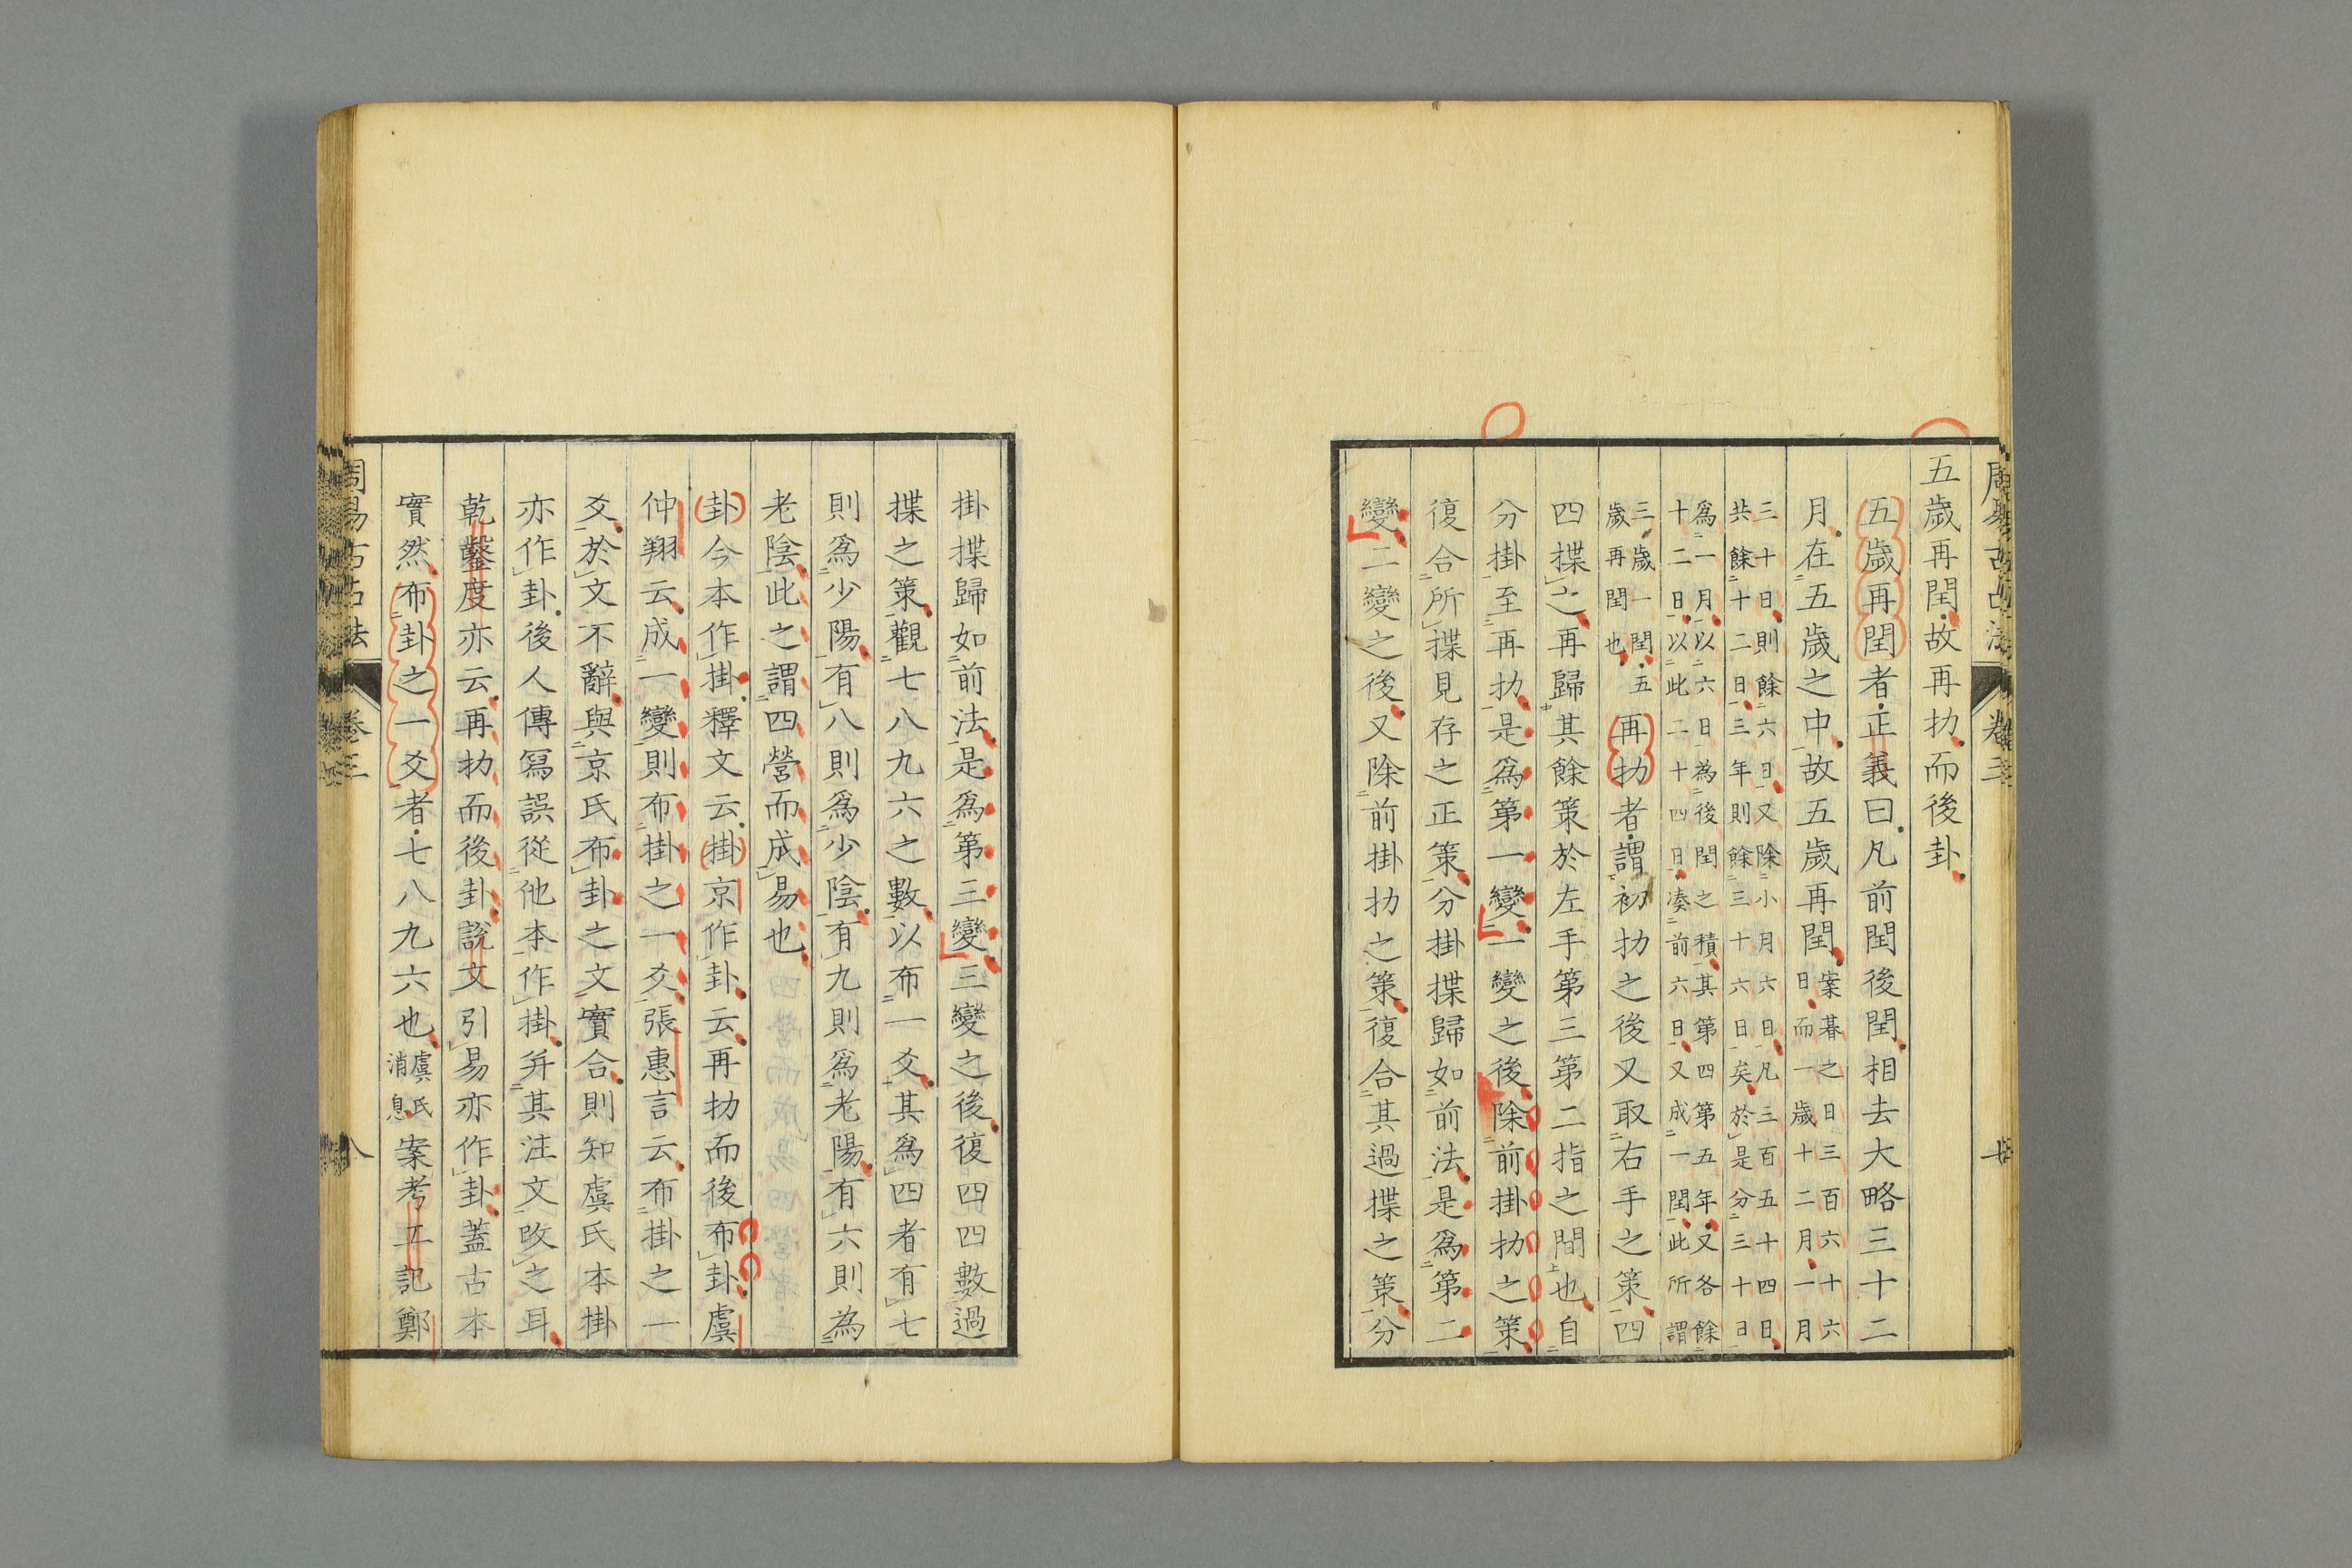 五歲再閏故再扐而後卦
五歲再閏者正義曰凡前閏後閏相去大略三十二
月在五歲之中故五歲再閏案朞之日三百六十六
日而一歲十二月一月
三十日則餘六日又除小月六日凡三百五十四日
共餘十二日三年則餘三十六日矣於是分三十日
爲一月以六日為後閏之積其第四第五年又各餘
十二日以此二十四日湊前六日又成一閏此所謂
三歲一閏五
歲再閏也
再扐者謂初扐之後又取右手之策四
四揲之再歸其餘策於左手第三第二指之間也自
分掛至再扐是爲第一變一變之後除前掛扐之策
復合所揲見存之正策分掛揲歸如前法是爲第二
變二變之後又除前掛扐之策復合其過揲之策分
掛揲歸如前法是爲第三變三變之後復四四數過
揲之策觀七八九六之數以布一爻其爲四者有七
則爲少陽有八則爲少陰有九則爲老陽有六則為
老陰此之謂四營而成易也
卦今本作掛釋文云掛京作卦云再扐而後布卦虞
仲翔云成一變則布掛之一爻張惠言云布掛之一
爻於文不辭與京氏布卦之文實合則知虞氏本掛
亦作卦後人傳寫誤從他本作掛并其注文改之耳
乾鑿度亦云再扐而後卦說文引易亦作卦蓋古本
實然布卦之一爻者七八九六也虞氏
消息
案考工記鄭
周易古占法 卷三 八